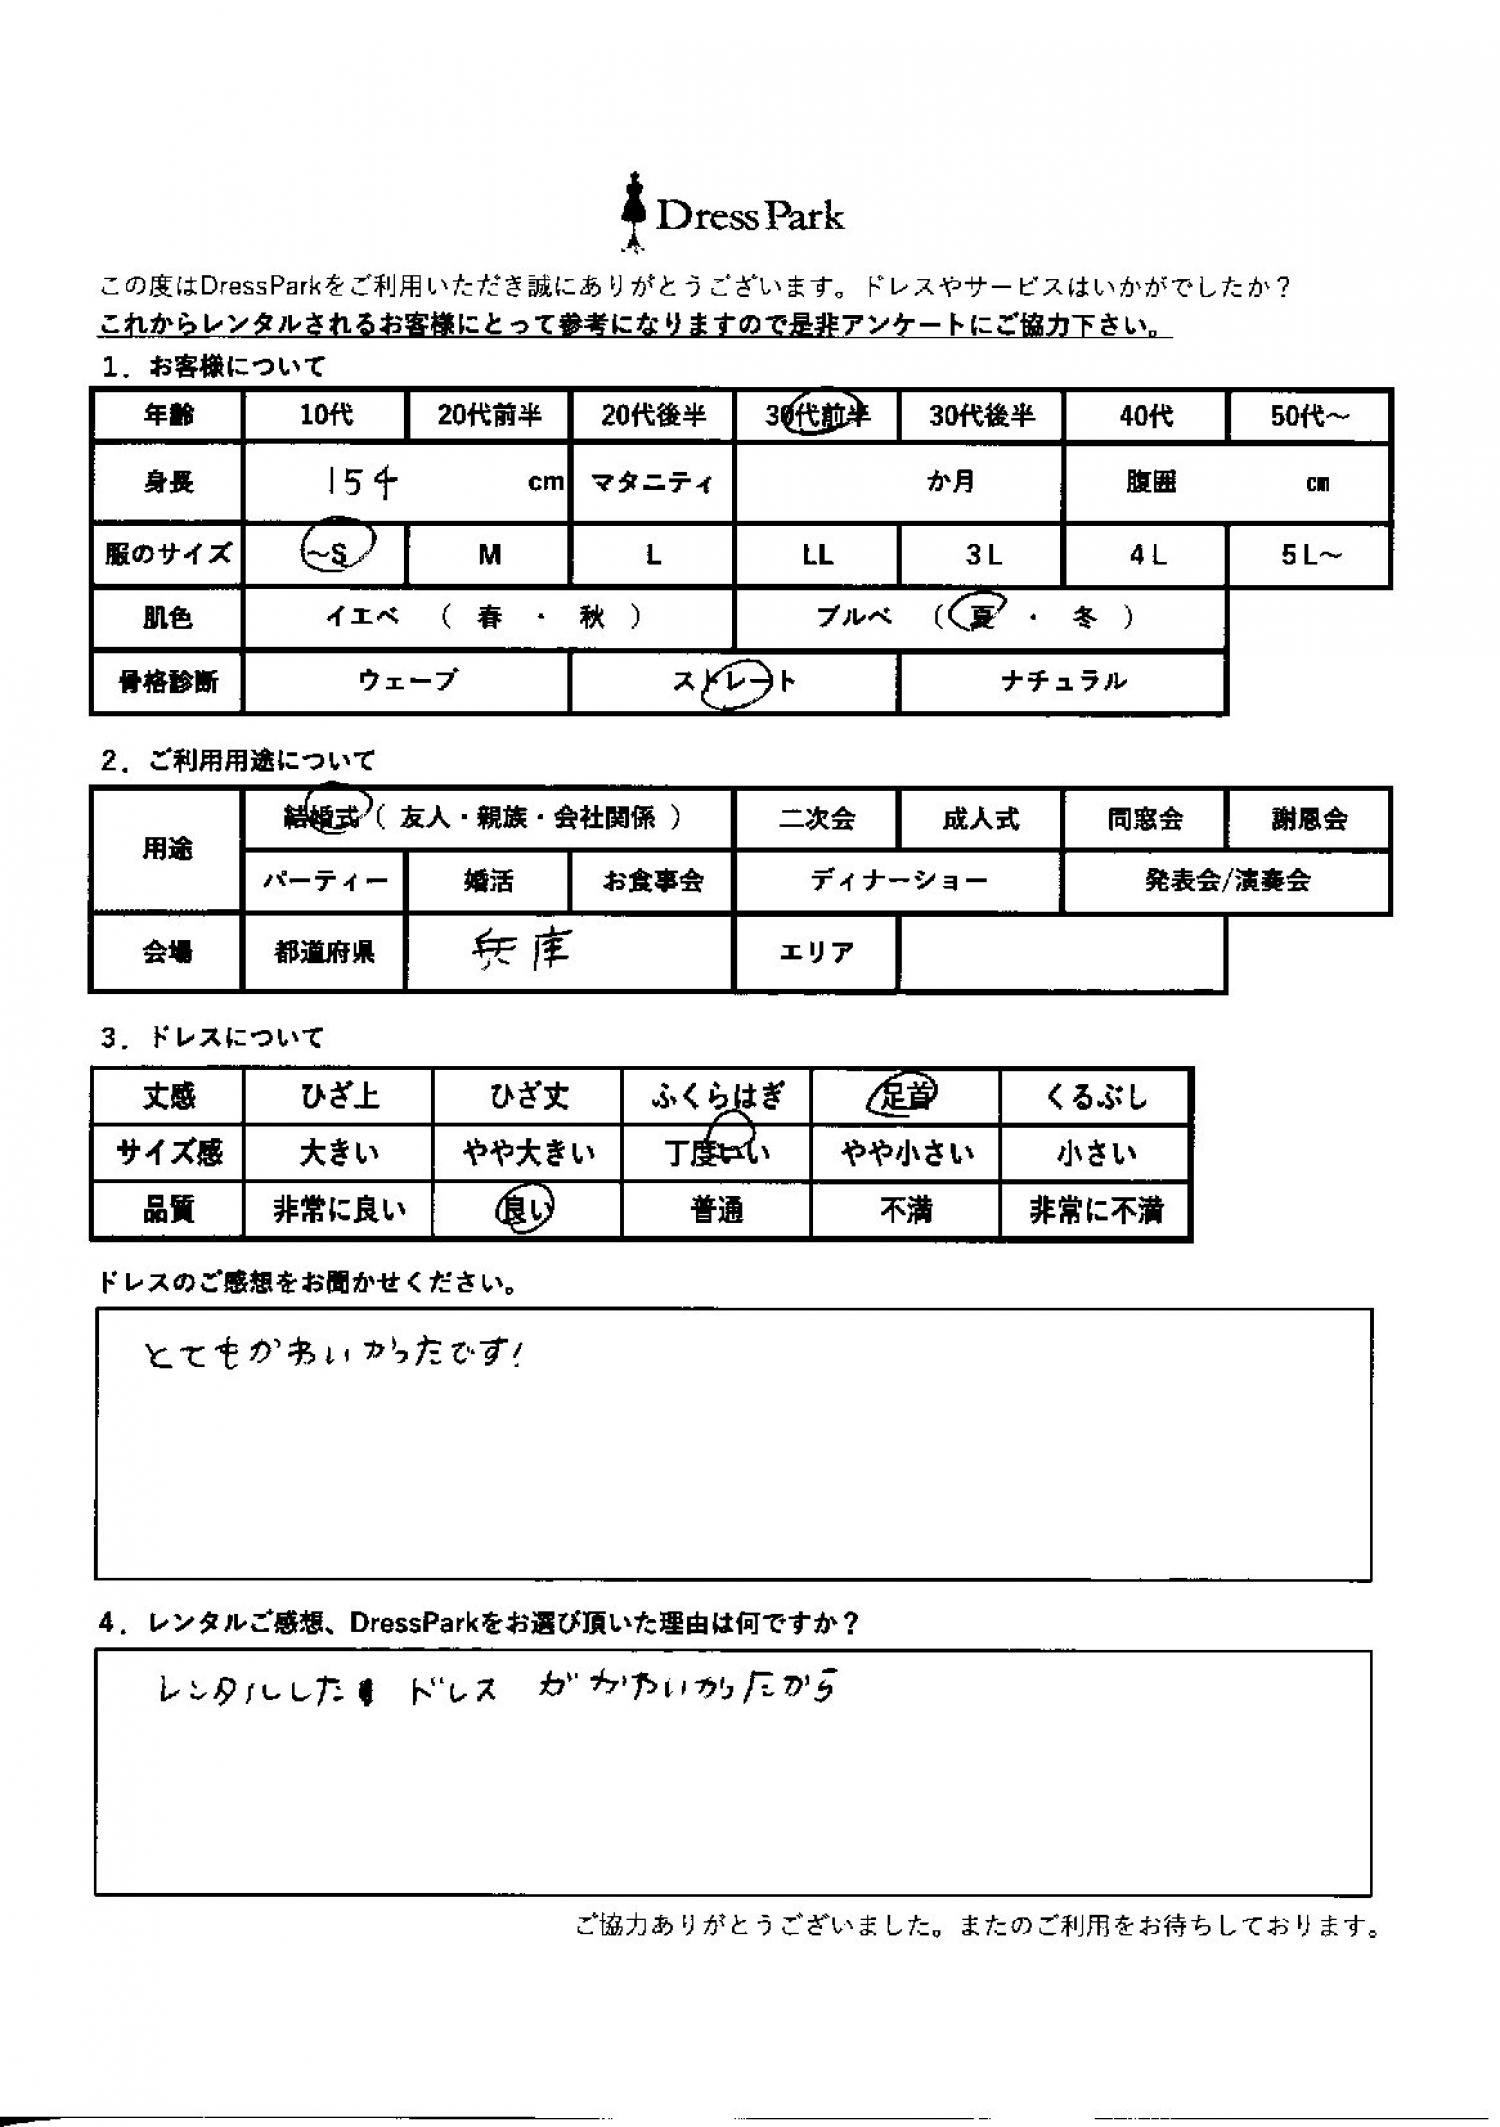 Dress Park
この度はDressParkをご利用いただき誠にありがとうございます。ドレスやサービスはいかがでしたか？
これからレンタルされるお客様にとって参考になりますので是非アンケートにご協力下さい。
1．お客様について
年齢 10代 20代前半 20代後半 30代前半 30代後半 40代 50代～
身長 154 cm マタニティ か月 腹囲 cm
服のサイズ ～S M L LL 3L 4L 5L～
肌色 イエベ （ 春 ・ 秋 ） ブルベ （ 夏 ・ 冬 ）
骨格診断 ウェーブ ストレート ナチュラル
2．ご利用用途について
用途 結婚式（ 友人・親族・会社関係 ） 二次会 成人式 同窓会 謝恩会
パーティー 婚活 お食事会 ディナーショー 発表会/演奏会
会場 都道府県 兵庫 エリア
3．ドレスについて
丈感 ひざ上 ひざ丈 ふくらはぎ 足首 くるぶし
サイズ感 大きい やや大きい 丁度いい やや小さい 小さい
品質 非常に良い 良い 普通 不満 非常に不満
ドレスのご感想をお聞かせください。
とてもかわいかったです!
4．レンタルご感想、DressParkをお選び頂いた理由は何ですか？
レンタルした ドレス がかわいかったから
ご協力ありがとうございました。またのご利用をお待ちしております。